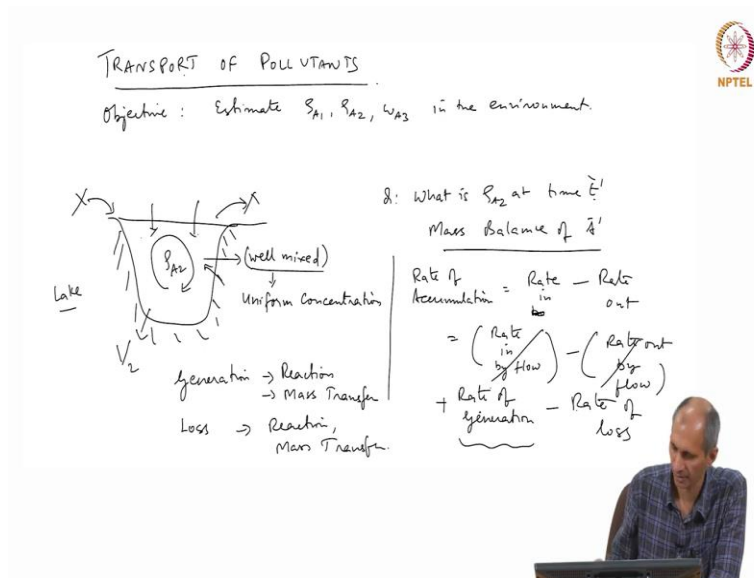 TRANSPORT OF POLLUTANTS
NPTEL
Objective : Estimate ρA1, ρA2, ωA3 in the environment.
X
X
ρA2
(well mixed)
Uniform Concentration
Lake
V2
Generation → Reaction
→ Mass Transfer
Loss → Reaction,
Mass Transfer.
Q: What is ρA2 at time 't'
Mass Balance of 'A'
Rate of Accumulation = Rate in - Rate out
= (Rate in by flow) - (Rate out by flow)
+ Rate of generation - Rate of loss